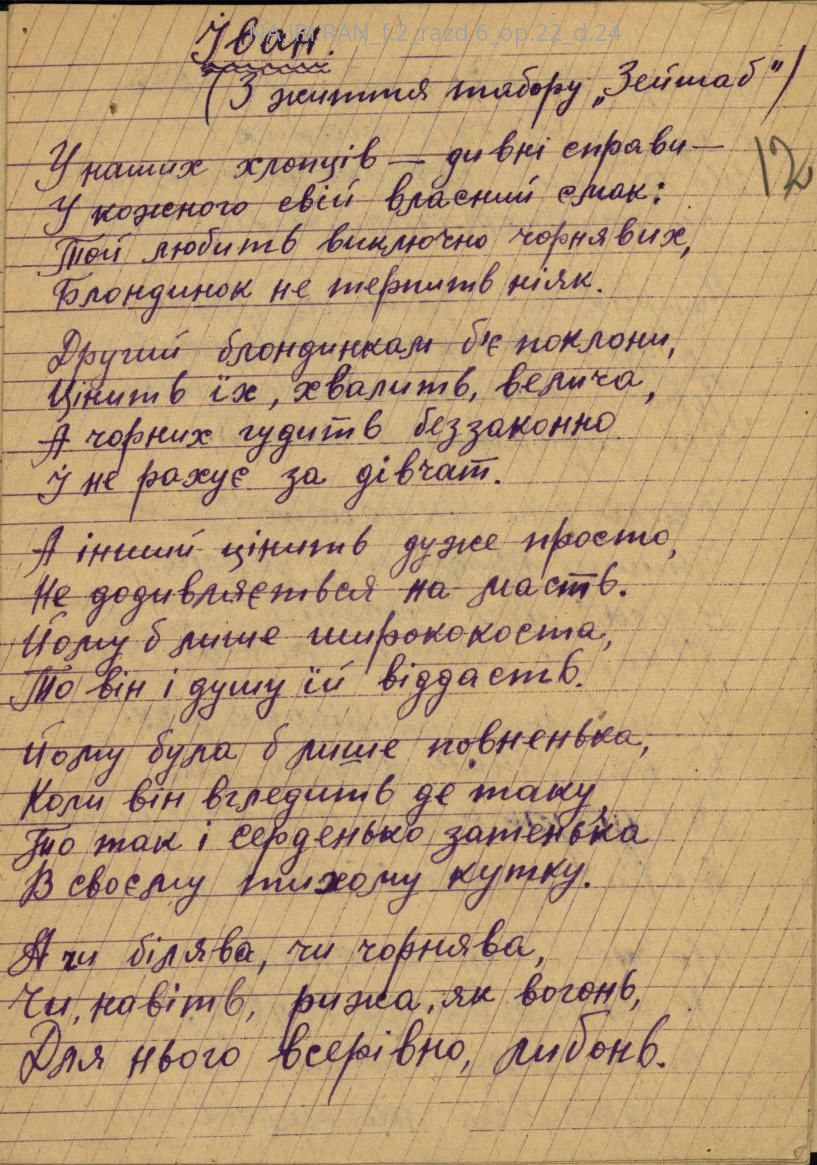 NA IRI RAN_f.2_razd.6_op.22_d.24
Іван.
(З життя табору „Зейтаб")
12
У наших хлопців — дивні справи —
У кожного свій власний смак:
Той любить виключно чорнявих,
Блондинок не терпить ніяк.
Другий блондинкам б'є поклони,
Цінить їх, хвалить, велича,
А чорних гудить беззаконно
І не рахує за дівчат.
А інший цінить дуже просто,
Не додивляється на масть.
Йому б лише ширококоста,
То він і душу їй віддасть.
Йому була б лише повненька,
Коли він вгледить де таку,
То так і серденько затенька
В своєму тихому кутку.
А чи білява, чи чорнява,
Чи, навіть, рижа, як вогонь,
Для нього всерівно, либонь.